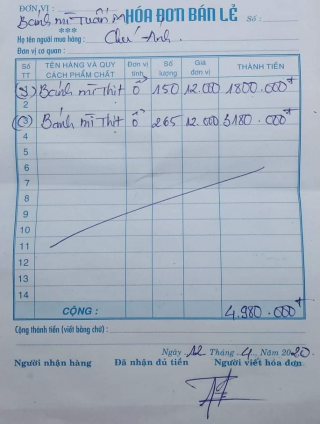 ĐƠN VỊ: Bánh mì Tuấn
HÓA ĐƠN BÁN LẺ Số:
***
Họ tên người mua hàng: Chú Ánh
Đơn vị cơ quan:
Số TT TÊN HÀNG VÀ QUY CÁCH PHẨM CHẤT Đơn vị tính Số lượng Giá đơn vị THÀNH TIỀN
Bánh mì Thịt ổ 150 12.000 1800.000đ
2
Bánh mì Thịt ổ 265 12.000 3180.000đ
4
5
6
7
8
9
10
11
12
13
14
CỘNG: 4.980.000đ
Cộng thành tiền (viết bằng chữ):
Ngày 12 Tháng 4 Năm 2020
Người nhận hàng Đã nhận đủ tiền Người viết hóa đơn